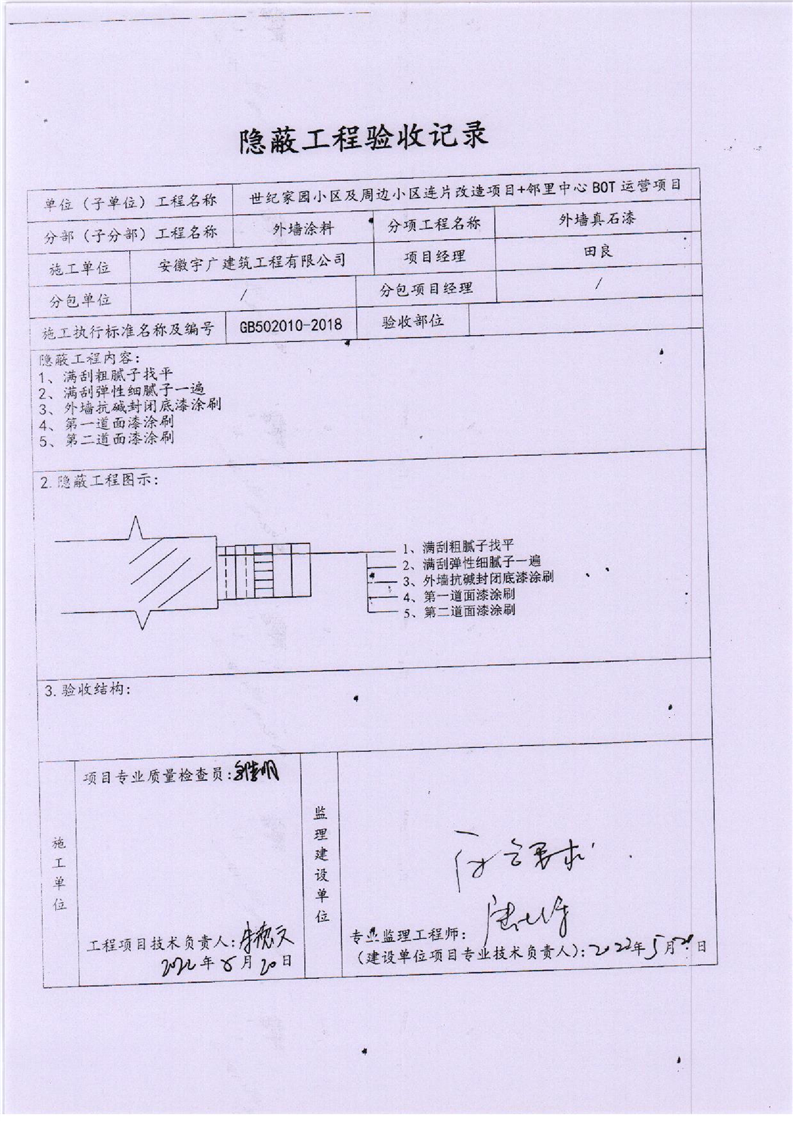 隐蔽工程验收记录
单位（子单位）工程名称 世纪家园小区及周边小区连片改造项目+邻里中心BOT运营项目
分部（子分部）工程名称 外墙涂料 分项工程名称 外墙真石漆
施工单位 安徽宇广建筑工程有限公司 项目经理 田良
分包单位 / 分包项目经理 /
施工执行标准名称及编号 GB502010-2018 验收部位
隐蔽工程内容：
1、满刮粗腻子找平
2、满刮弹性细腻子一遍
3、外墙抗碱封闭底漆涂刷
4、第一道面漆涂刷
5、第二道面漆涂刷
2.隐蔽工程图示：
1、满刮粗腻子找平
2、满刮弹性细腻子一遍
3、外墙抗碱封闭底漆涂刷
4、第一道面漆涂刷
5、第二道面漆涂刷
3.验收结构：
施工单位
项目专业质量检查员：
工程项目技术负责人：
2022年5月20日
监理建设单位
符合要求
专业监理工程师：
（建设单位项目专业技术负责人）：2022年5月20日